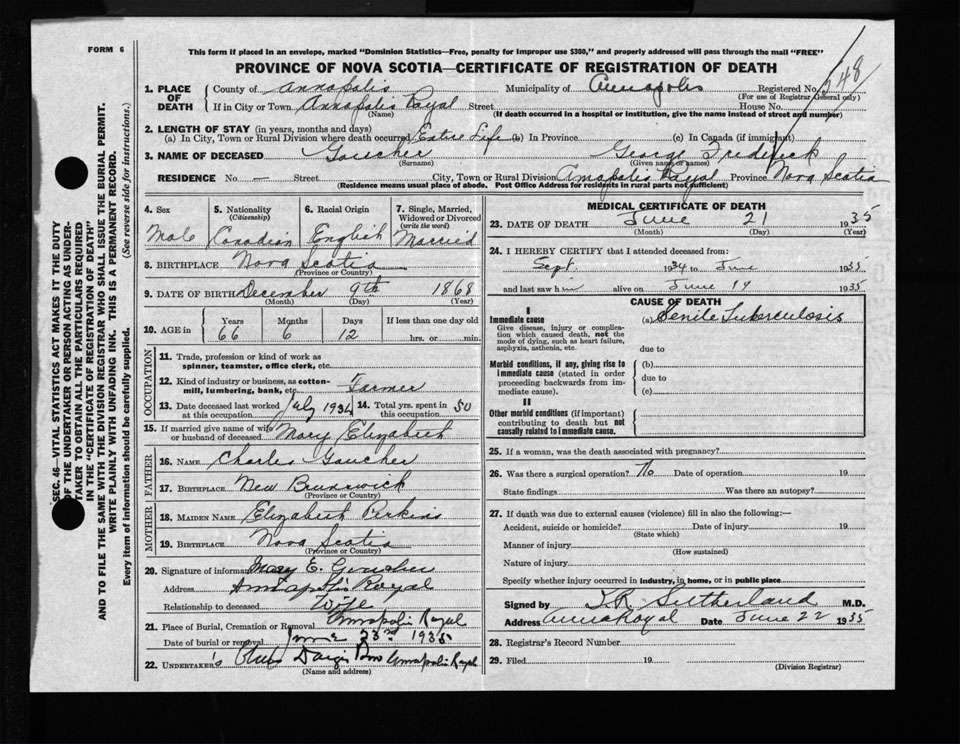 FORM 6
This form if placed in an envelope, marked "Dominion Statistics—Free, penalty for improper use $300," and properly addressed will pass through the mail "FREE"
PROVINCE OF NOVA SCOTIA—CERTIFICATE OF REGISTRATION OF DEATH
SEC. 46—VITAL STATISTICS ACT MAKES IT THE DUTY
OF THE UNDERTAKER OR PERSON ACTING AS UNDER-
TAKER TO OBTAIN ALL THE PARTICULARS REQUIRED
IN THE "CERTIFICATE OF REGISTRATION OF DEATH"
AND TO FILE THE SAME WITH THE DIVISION REGISTRAR WHO SHALL ISSUE THE BURIAL PERMIT.
WRITE PLAINLY WITH UNFADING INK. THIS IS A PERMANENT RECORD.
Every item of information should be carefully supplied. (See reverse side for instructions.)
1. PLACE OF DEATH County of Annapolis Municipality of Annapolis Registered No. 348
(For use of Registrar General only)
If in City or Town Annapolis Royal Street House No.
(Name) (If death occurred in a hospital or institution, give the name instead of street and number)
2. LENGTH OF STAY (in years, months and days)
(a) In City, Town or Rural Division where death occurred Entire Life (b) In Province (c) In Canada (if immigrant)
3. NAME OF DECEASED Goucher George Frederick
(Surname) (Given name or names)
RESIDENCE No. — Street City, Town or Rural Division Annapolis Royal Province Nova Scotia
(Residence means usual place of abode. Post Office Address for residents in rural parts not sufficient)
4. Sex 5. Nationality (Citizenship) 6. Racial Origin 7. Single, Married, Widowed or Divorced (write the word)
Male Canadian English Married
8. BIRTHPLACE Nova Scotia
(Province or Country)
9. DATE OF BIRTH December 9th 1868
(Month) (Day) (Year)
10. AGE in Years Months Days If less than one day old
66 6 12 hrs. or min.
OCCUPATION
11. Trade, profession or kind of work as
spinner, teamster, office clerk, etc.
12. Kind of industry or business, as cotton-
mill, lumbering, bank, etc. Farmer
13. Date deceased last worked at this occupation July 1934 14. Total yrs. spent in this occupation 50
15. If married give name of wife or husband of deceased Mary Elizabeth
FATHER
16. NAME Charles Goucher
17. BIRTHPLACE New Brunswick
(Province or Country)
MOTHER
18. MAIDEN NAME Elizabeth Perkins
19. BIRTHPLACE Nova Scotia
(Province or Country)
20. Signature of informant Mary E. Goucher
Address Annapolis Royal
Relationship to deceased Wife
21. Place of Burial, Cremation or Removal Annapolis Royal
Date of burial or removal June 23rd 1935
22. UNDERTAKER's Annapolis Royal
(Name and address)
MEDICAL CERTIFICATE OF DEATH
23. DATE OF DEATH June 21 1935
(Month) (Day) (Year)
24. I HEREBY CERTIFY that I attended deceased from:
Sept. 1934 to June 1935
and last saw him alive on June 19 1935
CAUSE OF DEATH
I
Immediate cause (a) Senile Tuberculosis
Give disease, injury or complica-
tion which caused death, not the
mode of dying, such as heart failure,
asphyxia, asthenia, etc. due to
Morbid conditions, if any, giving rise to (b)
immediate cause (stated in order due to
proceeding backwards from im-
mediate cause). (c)
II
Other morbid conditions (if important)
contributing to death but not
causally related to immediate cause.
25. If a woman, was the death associated with pregnancy?
26. Was there a surgical operation? No Date of operation 19
State findings Was there an autopsy?
27. If death was due to external causes (violence) fill in also the following:—
Accident, suicide or homicide? Date of injury 19
(State which)
Manner of injury
(How sustained)
Nature of injury
Specify whether injury occurred in industry, in home, or in public place
Signed by Sutherland M.D.
Address Anna Royal Date June 22 1935
28. Registrar's Record Number
29. Filed 19
(Division Registrar)